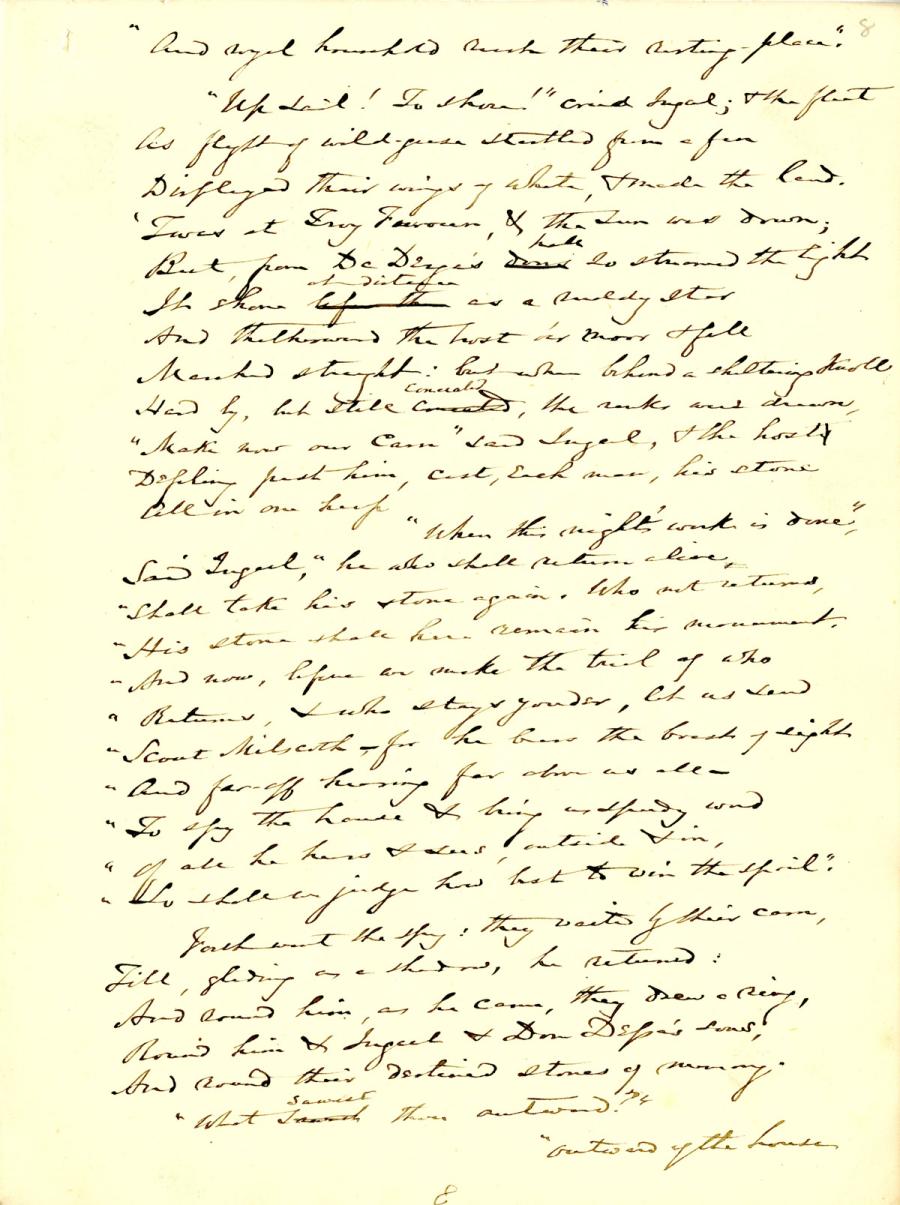 8
"And royal household rush their resting-place".
"Up sail! To shore!" cried Ingcel; & the fleet
As flight of wild-geese startled from a fen
Displayed their wings of white, & made the land.
'Twas at Troy Furviun, & the sun was down;
But, from Da Derga's hall so streamed the light
at distance
It shone as a ruddy star
And thitherward the host o'er moor & fell
Marched straight: but when behind a sheltering knoll
concealed
Hard by, but still concealed, the ranks were drawn,
"Make now our Carn" said Ingcel, & the host
Defiling past him, cast, each man, his stone
All in one heap
"When this night's work is done",
Said Ingcel, "he who shall return alive,
"Shall take his stone again. Who not returns,
"His stone shall here remain his monument.
"And now, before we make the trial of who
"Returns, & who stays yonder, let us send
"Scout Milscoth – for he bears the boast of sight
"And far-off hearing far above us all –
"To spy the house & bring us speedy word
"Of all he hears & sees, outside & in,
"So shall we judge how best to win the spoil".
Forth went the spy: they waited by their carn,
Till, gliding as a shadow, he returned:
And round him, as he came, they drew a ring,
Round him & Ingcel & Don Dessa's sons,
And round their destined stones of memory.
sawest
"What thou outward?"
"Outward of the house
8